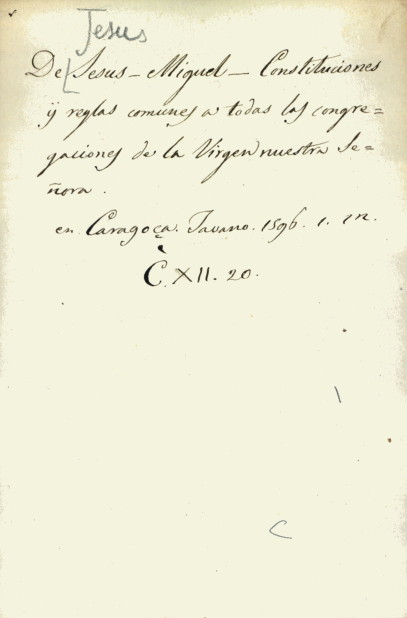 Jesus
De Jesus - Miguel - Constituciones
ÿ reglas comunes a todas las congre=
gaciones de la Virgen nuestra Se=
ñora.
en Caragoça. Tavano. 1596. 1. in.
C. XII. 20.
C